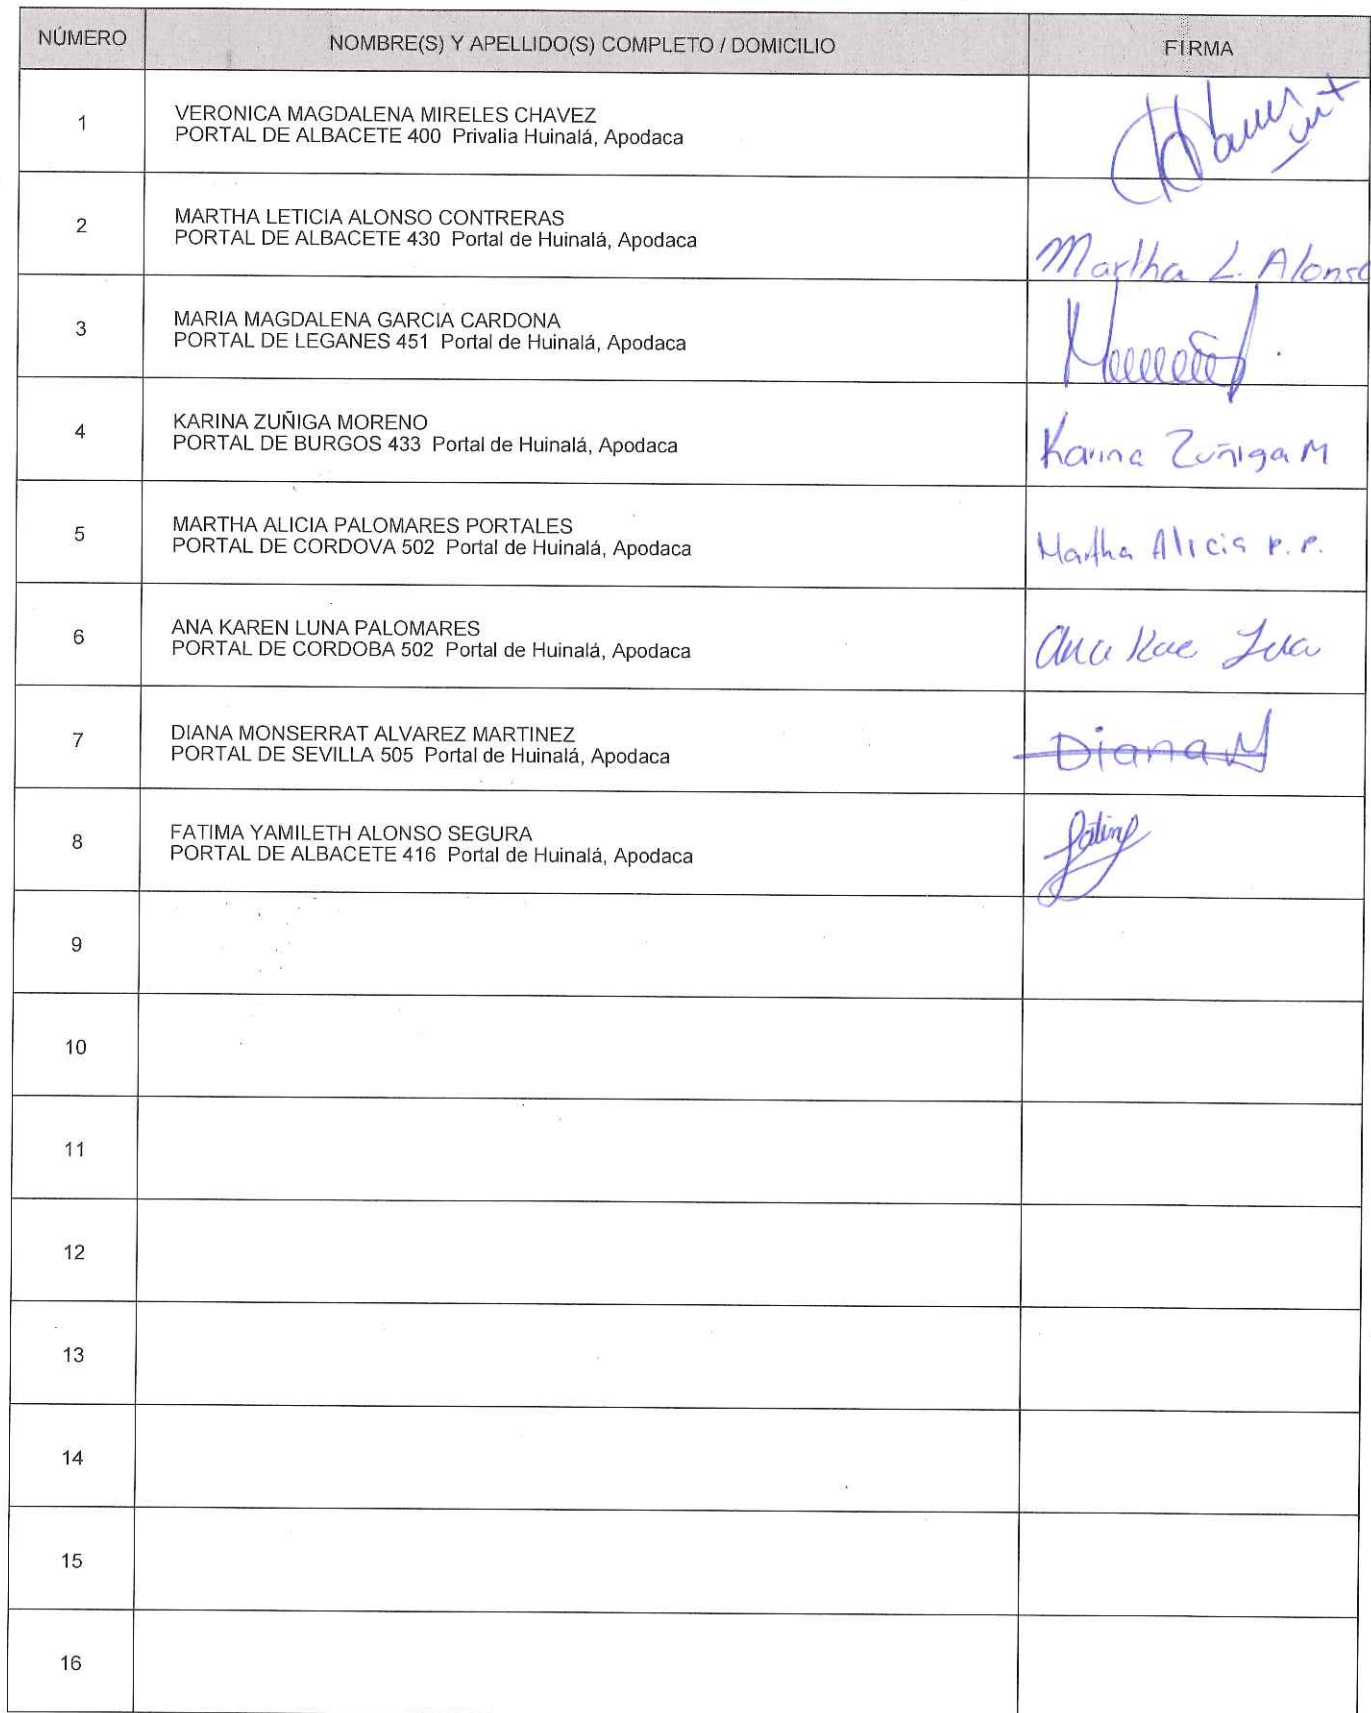 NÚMERO
NOMBRE(S) Y APELLIDO(S) COMPLETO / DOMICILIO
FIRMA
1
VERONICA MAGDALENA MIRELES CHAVEZ
PORTAL DE ALBACETE 400 Privalia Huinalá, Apodaca
2
MARTHA LETICIA ALONSO CONTRERAS
PORTAL DE ALBACETE 430 Portal de Huinalá, Apodaca
Martha L. Alonso
3
MARIA MAGDALENA GARCIA CARDONA
PORTAL DE LEGANES 451 Portal de Huinalá, Apodaca
4
KARINA ZUÑIGA MORENO
PORTAL DE BURGOS 433 Portal de Huinalá, Apodaca
Karina Zuñiga M
5
MARTHA ALICIA PALOMARES PORTALES
PORTAL DE CORDOVA 502 Portal de Huinalá, Apodaca
Martha Alicia P. P.
6
ANA KAREN LUNA PALOMARES
PORTAL DE CORDOBA 502 Portal de Huinalá, Apodaca
Ana
7
DIANA MONSERRAT ALVAREZ MARTINEZ
PORTAL DE SEVILLA 505 Portal de Huinalá, Apodaca
Diana M
8
FATIMA YAMILETH ALONSO SEGURA
PORTAL DE ALBACETE 416 Portal de Huinalá, Apodaca
9
10
11
12
13
14
15
16